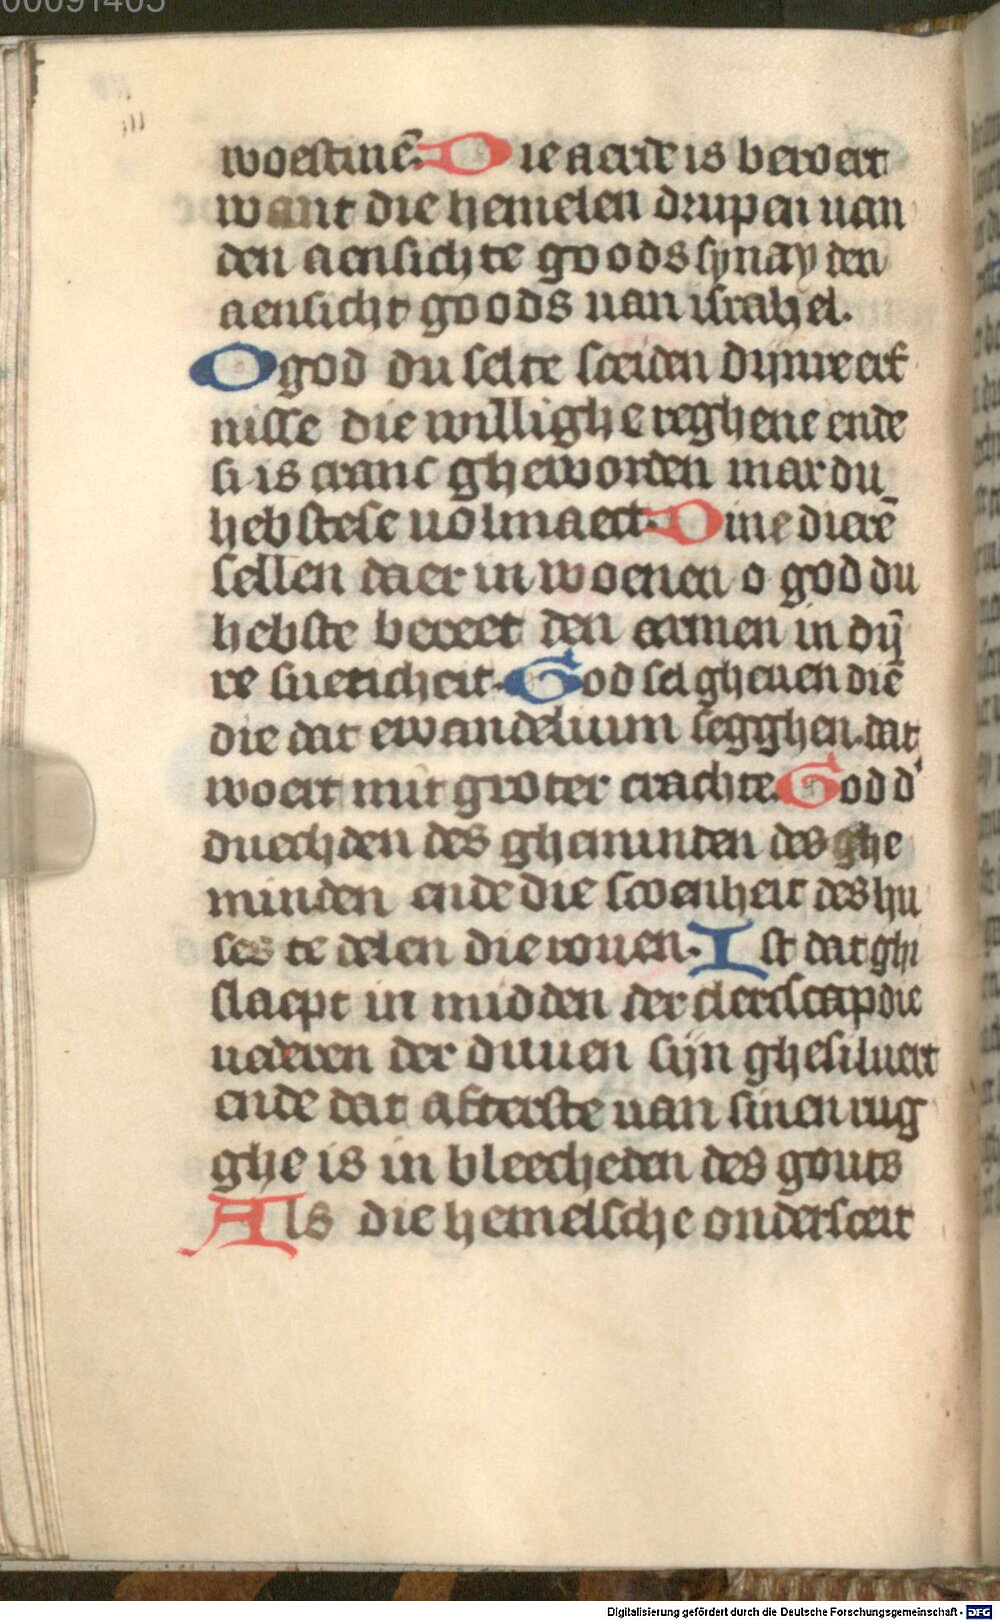 00091405
woestinē. Die aerde is beroert
want die hemelen drupen uan
den aensichte goods synay den
aensicht goods uan israhel.
O god du selte sceiden dijnre erf
nisse die willighe reghene ende
si is cranc gheworden mar du
hebstese uolmaect. Dine dierē
sellen daer in woenen o god du
hebste bereet den armen in dij̄
re sueticheit. God sel gheuen diē
die dat ewandelium segghen. dat
woert mit groter crachte. God d'
duechden des gheminden des ghe
minden ende die scoenheit des hu
ses te delen die rouen. Ist dat ghi
slaept in midden der clercscap die
uederen der duuen sijn ghesiluert
ende dat afterste uan sinen rug
ghe is in bleecheden des gouts
Als die hemelsche ondersceit
Digitalisierung gefördert durch die Deutsche Forschungsgemeinschaft - DFG